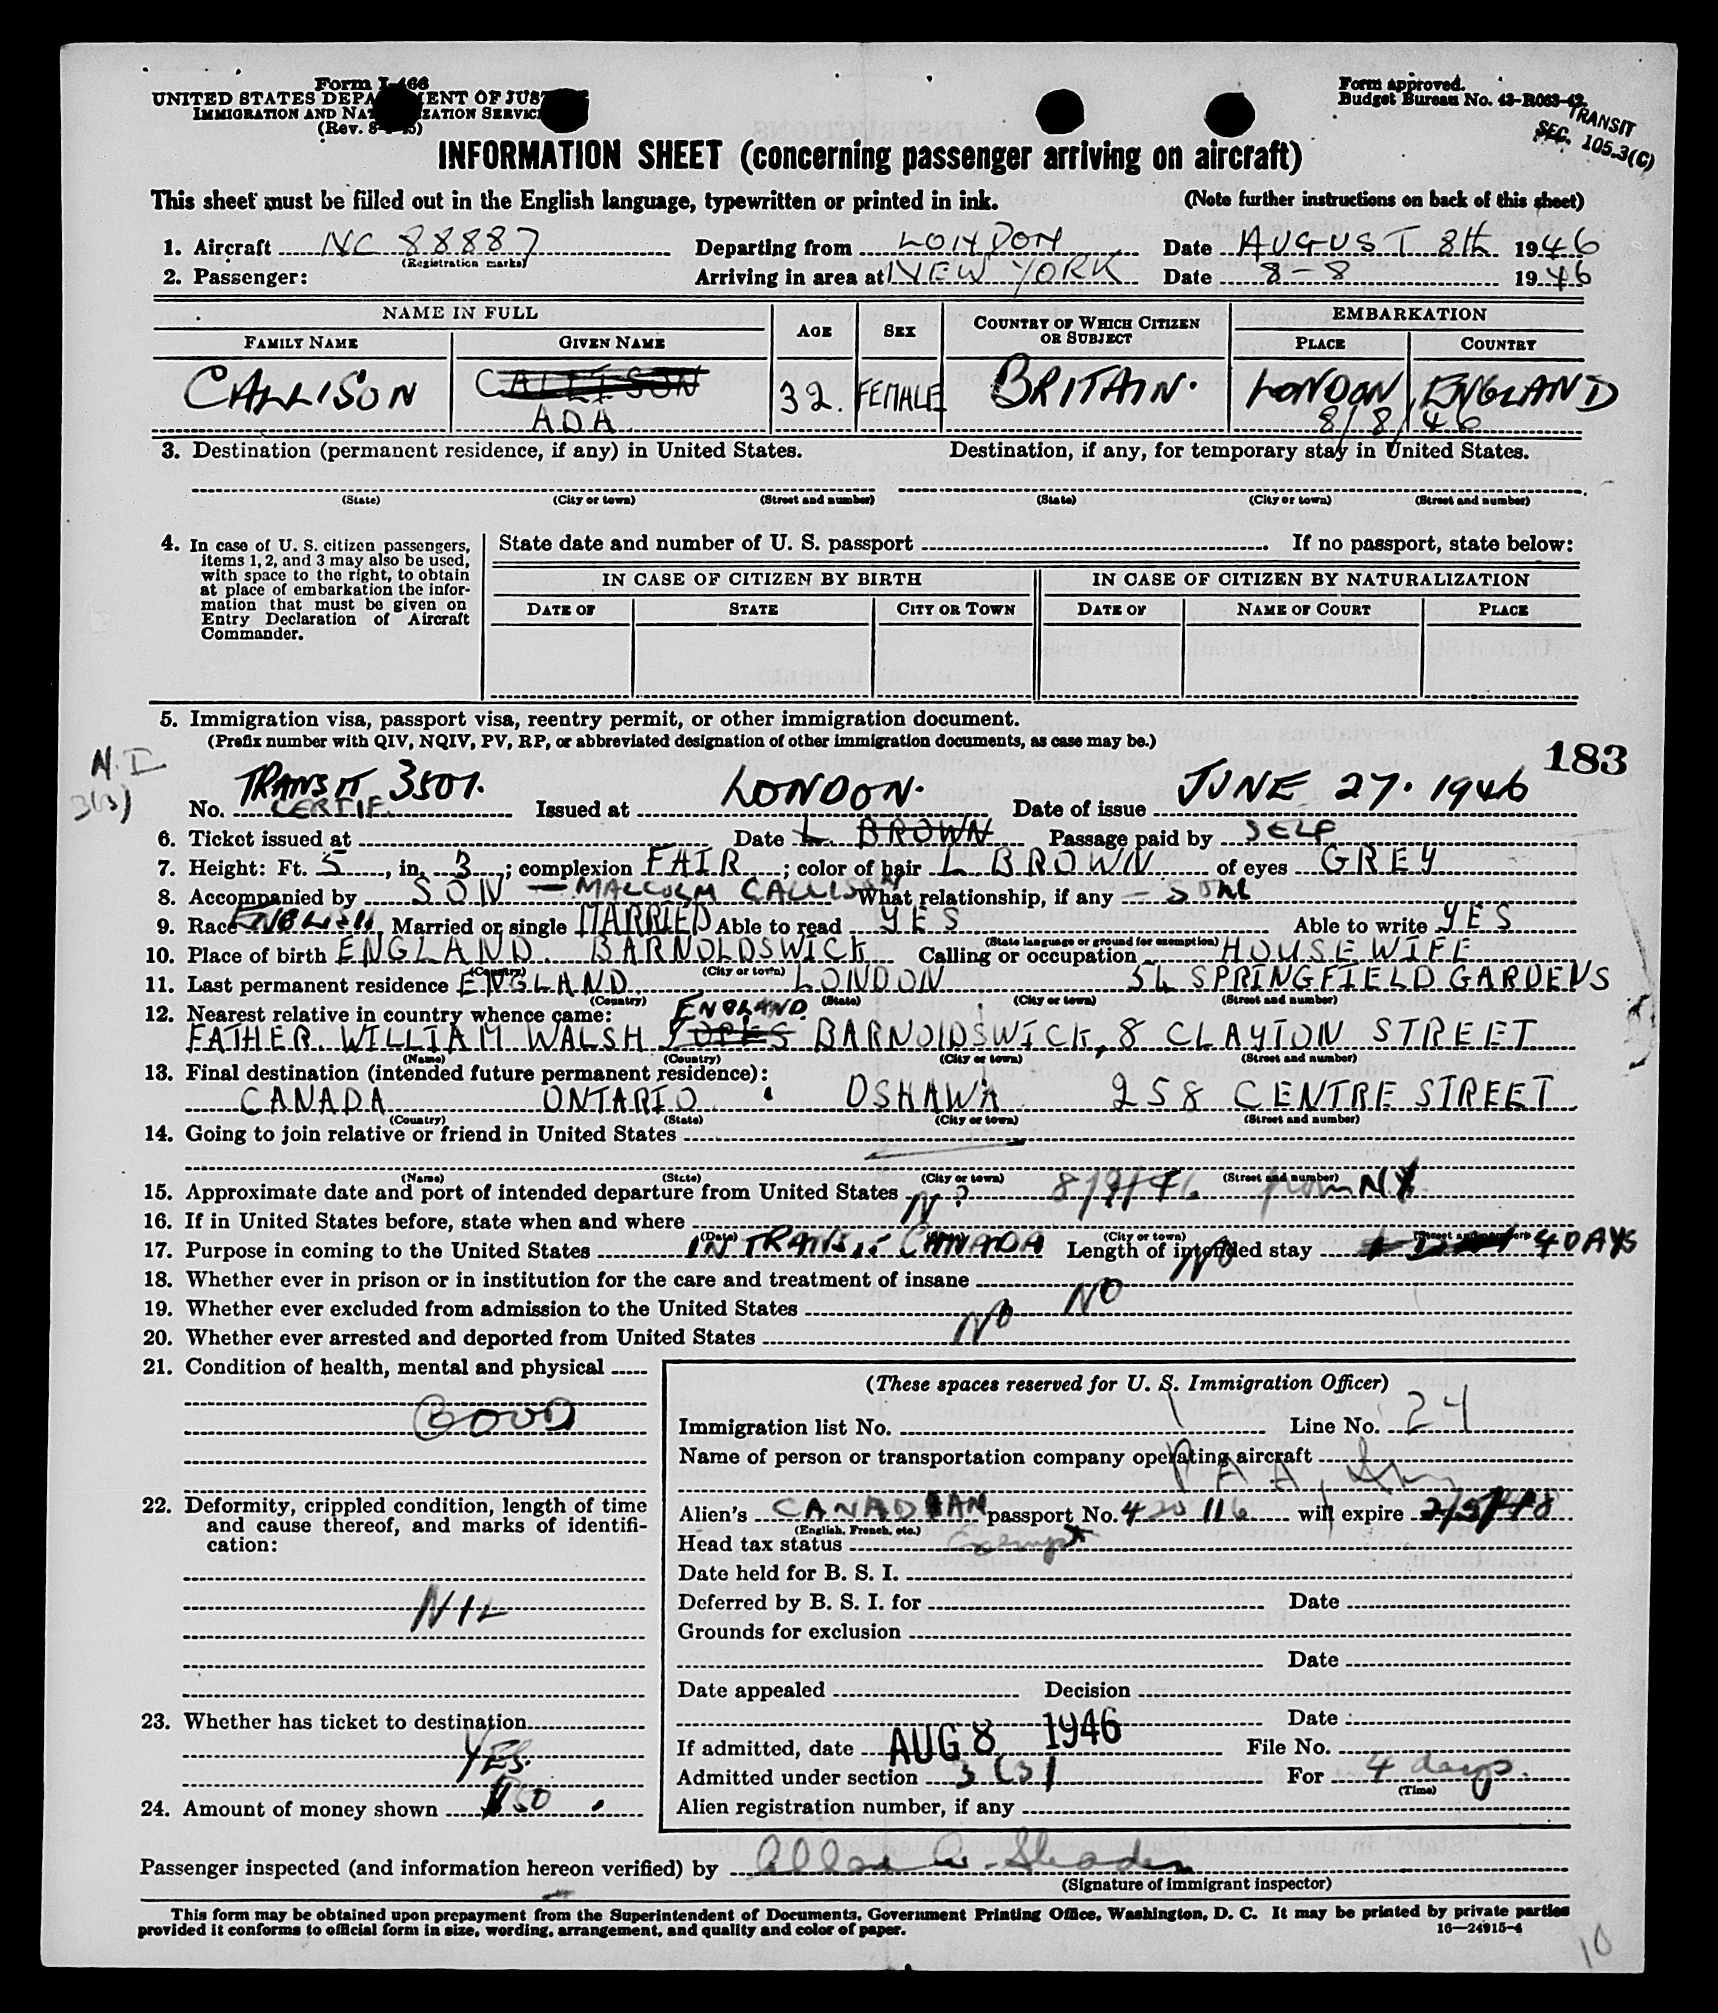 Form I-466
UNITED STATES DEPARTMENT OF JUSTICE
IMMIGRATION AND NATURALIZATION SERVICE
Form approved.
Budget Bureau No. 43-R063-42.
TRANSIT
SEC. 105.3(C)
INFORMATION SHEET (concerning passenger arriving on aircraft)
This sheet must be filled out in the English language, typewritten or printed in ink. (Note further instructions on back of this sheet)
1. Aircraft NC 88887 Departing from LONDON Date AUGUST 8th 1946
(Registration marks)
2. Passenger: Arriving in area at NEW YORK Date 8-8 1946
NAME IN FULL AGE SEX COUNTRY OF WHICH CITIZEN OR SUBJECT EMBARKATION
FAMILY NAME GIVEN NAME PLACE COUNTRY
CALLISON CALLISON 32. FEMALE BRITAIN. LONDON ENGLAND
ADA 8/8/46
3. Destination (permanent residence, if any) in United States. Destination, if any, for temporary stay in United States.
(State) (City or town) (Street and number) (State) (City or town) (Street and number)
4. In case of U. S. citizen passengers, items 1, 2, and 3 may also be used, with space to the right, to obtain at place of embarkation the information that must be given on Entry Declaration of Aircraft Commander.
State date and number of U. S. passport . If no passport, state below:
IN CASE OF CITIZEN BY BIRTH IN CASE OF CITIZEN BY NATURALIZATION
DATE OF STATE CITY OR TOWN DATE OF NAME OF COURT PLACE
5. Immigration visa, passport visa, reentry permit, or other immigration document.
(Prefix number with QIV, NQIV, PV, RP, or abbreviated designation of other immigration documents, as case may be.)
183
N.I
3(3)
No. TRANSIT CERTIF. 3507. Issued at LONDON. Date of issue JUNE 27. 1946
6. Ticket issued at Date L. BROWN Passage paid by SELF
7. Height: Ft. 5, in. 3; complexion FAIR; color of hair L BROWN of eyes GREY
8. Accompanied by SON - MALCOLM CALLISON What relationship, if any - SON
9. Race ENGLISH Married or single MARRIED Able to read YES Able to write YES
(State language or ground for exemption)
10. Place of birth ENGLAND. BARNOLDSWICK Calling or occupation HOUSEWIFE
(Country) (City or town)
11. Last permanent residence ENGLAND LONDON 34 SPRINGFIELD GARDENS
(Country) (State) (City or town) (Street and number)
12. Nearest relative in country whence came: ENGLAND.
FATHER. WILLIAM WALSH BARNOLDSWICK, 8 CLAYTON STREET
(Name) (Country) (City or town) (Street and number)
13. Final destination (intended future permanent residence):
CANADA ONTARIO OSHAWA 258 CENTRE STREET
(Country) (State) (City or town) (Street and number)
14. Going to join relative or friend in United States
(Name) (State) (City or town) (Street and number)
15. Approximate date and port of intended departure from United States 8/9/46 from NY.
16. If in United States before, state when and where NO
(Date) (City or town) (Street and number)
17. Purpose in coming to the United States IN TRANSIT CANADA Length of intended stay 4 DAYS
18. Whether ever in prison or in institution for the care and treatment of insane NO
19. Whether ever excluded from admission to the United States NO
20. Whether ever arrested and deported from United States NO
21. Condition of health, mental and physical
GOOD
22. Deformity, crippled condition, length of time and cause thereof, and marks of identification:
NIL
23. Whether has ticket to destination
YES.
24. Amount of money shown $50.
(These spaces reserved for U. S. Immigration Officer)
Immigration list No. 1 Line No. 24
Name of person or transportation company operating aircraft
P A A
Alien's CANADIAN passport No. 420116 will expire 2/5/48
(English, French, etc.)
Head tax status Exempt
Date held for B. S. I.
Deferred by B. S. I. for Date
Grounds for exclusion
Date
Date appealed Decision
Date
If admitted, date AUG 8 1946 File No.
Admitted under section 3(3) For 4 days.
(Time)
Alien registration number, if any
Passenger inspected (and information hereon verified) by
(Signature of immigrant inspector)
This form may be obtained upon prepayment from the Superintendent of Documents, Government Printing Office, Washington, D. C. It may be printed by private parties
provided it conforms to official form in size, wording, arrangement, and quality and color of paper. 16-24915-4
10